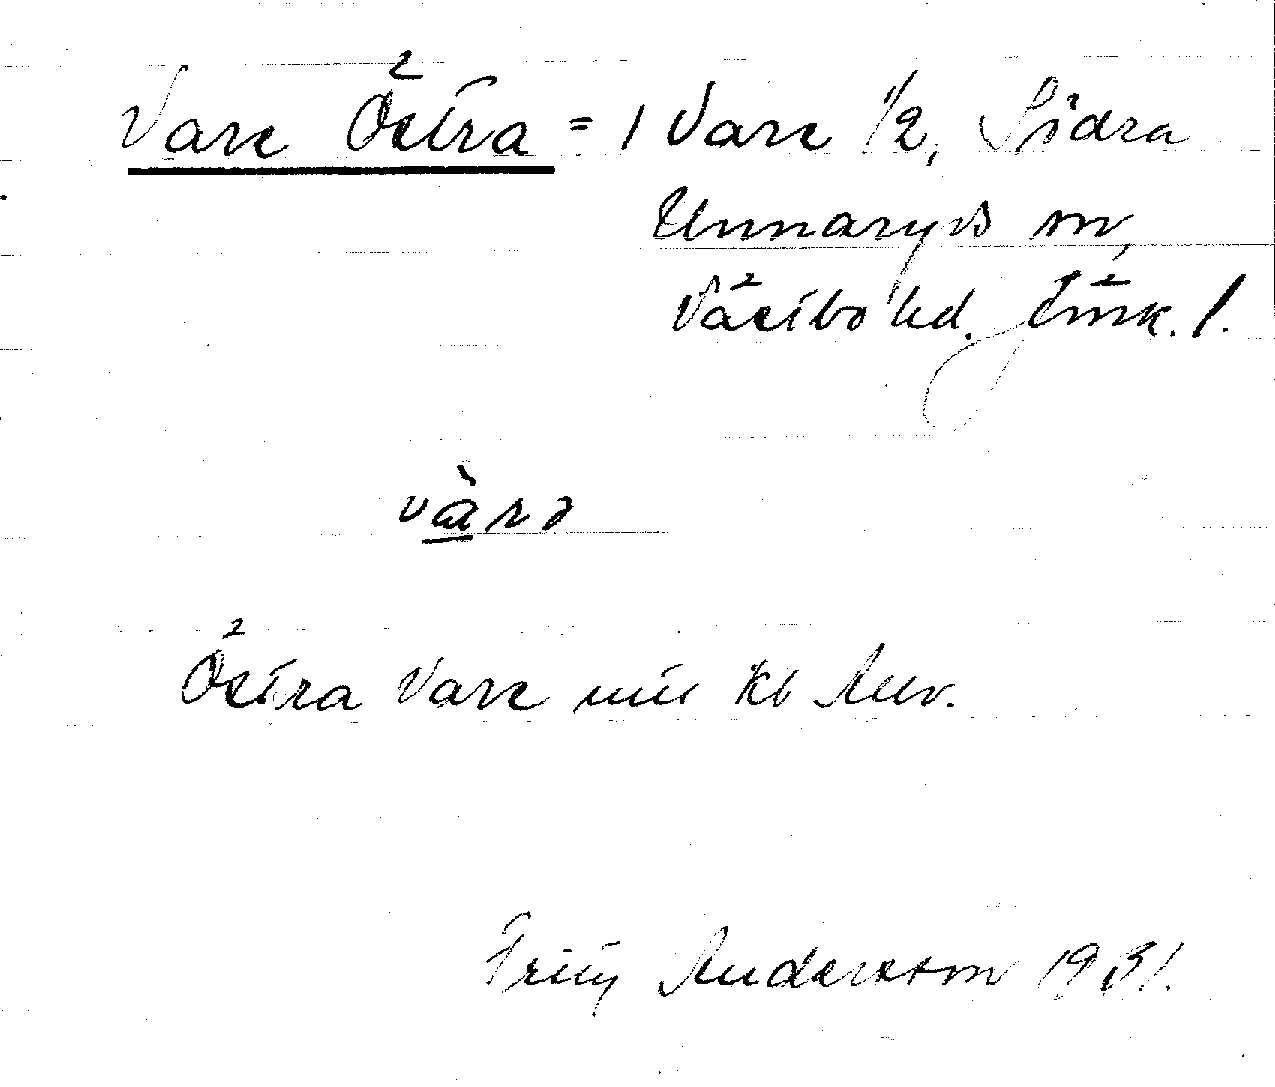 Vare Östra = 1 Vare 1/2, Södra
Unnaryds sn,
Västbo hd. Jönk. l.
vàrə
Östra Vare
Andersson 1931.